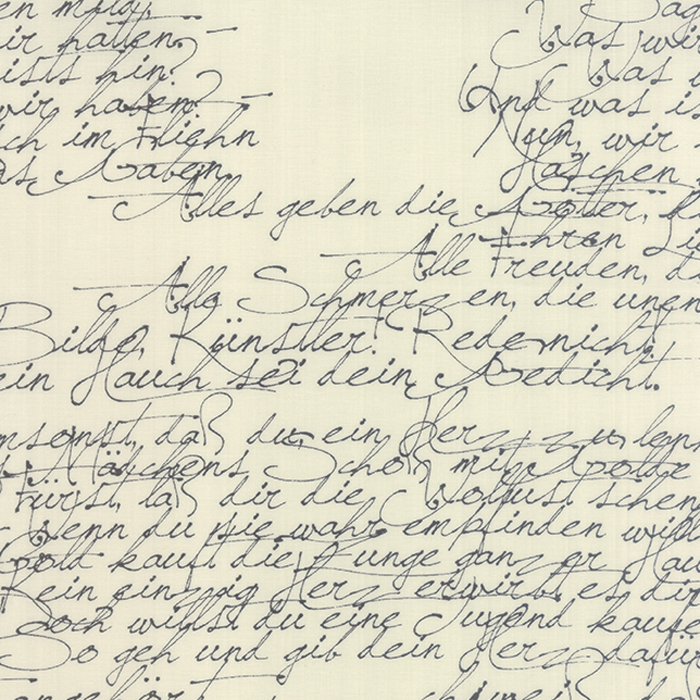 ir hatten, Was wir
ists hin? Was
wir haben? Und was is
ch im Fliehn Nun, wir
as Gaben Haschen
Alles geben die Götter, d
Ihren Li
Alle Freuden, d
Alle Schmerzen, die unen
Bilde, Künstler! Rede nicht!
ein Hauch sei dein Gedicht.
msonst, daß du, ein Herz zu lenk
Mädchens Schoß mit Golde
Fürst, laß dir die Wollust schen
Wenn du sie wahr empfinden will
Gold kauft die Zunge ganzer Hau
Kein einzig Herz erwirbt es dir
Doch willst du eine Tugend kaufe
So geh und gib dein Herz dafür